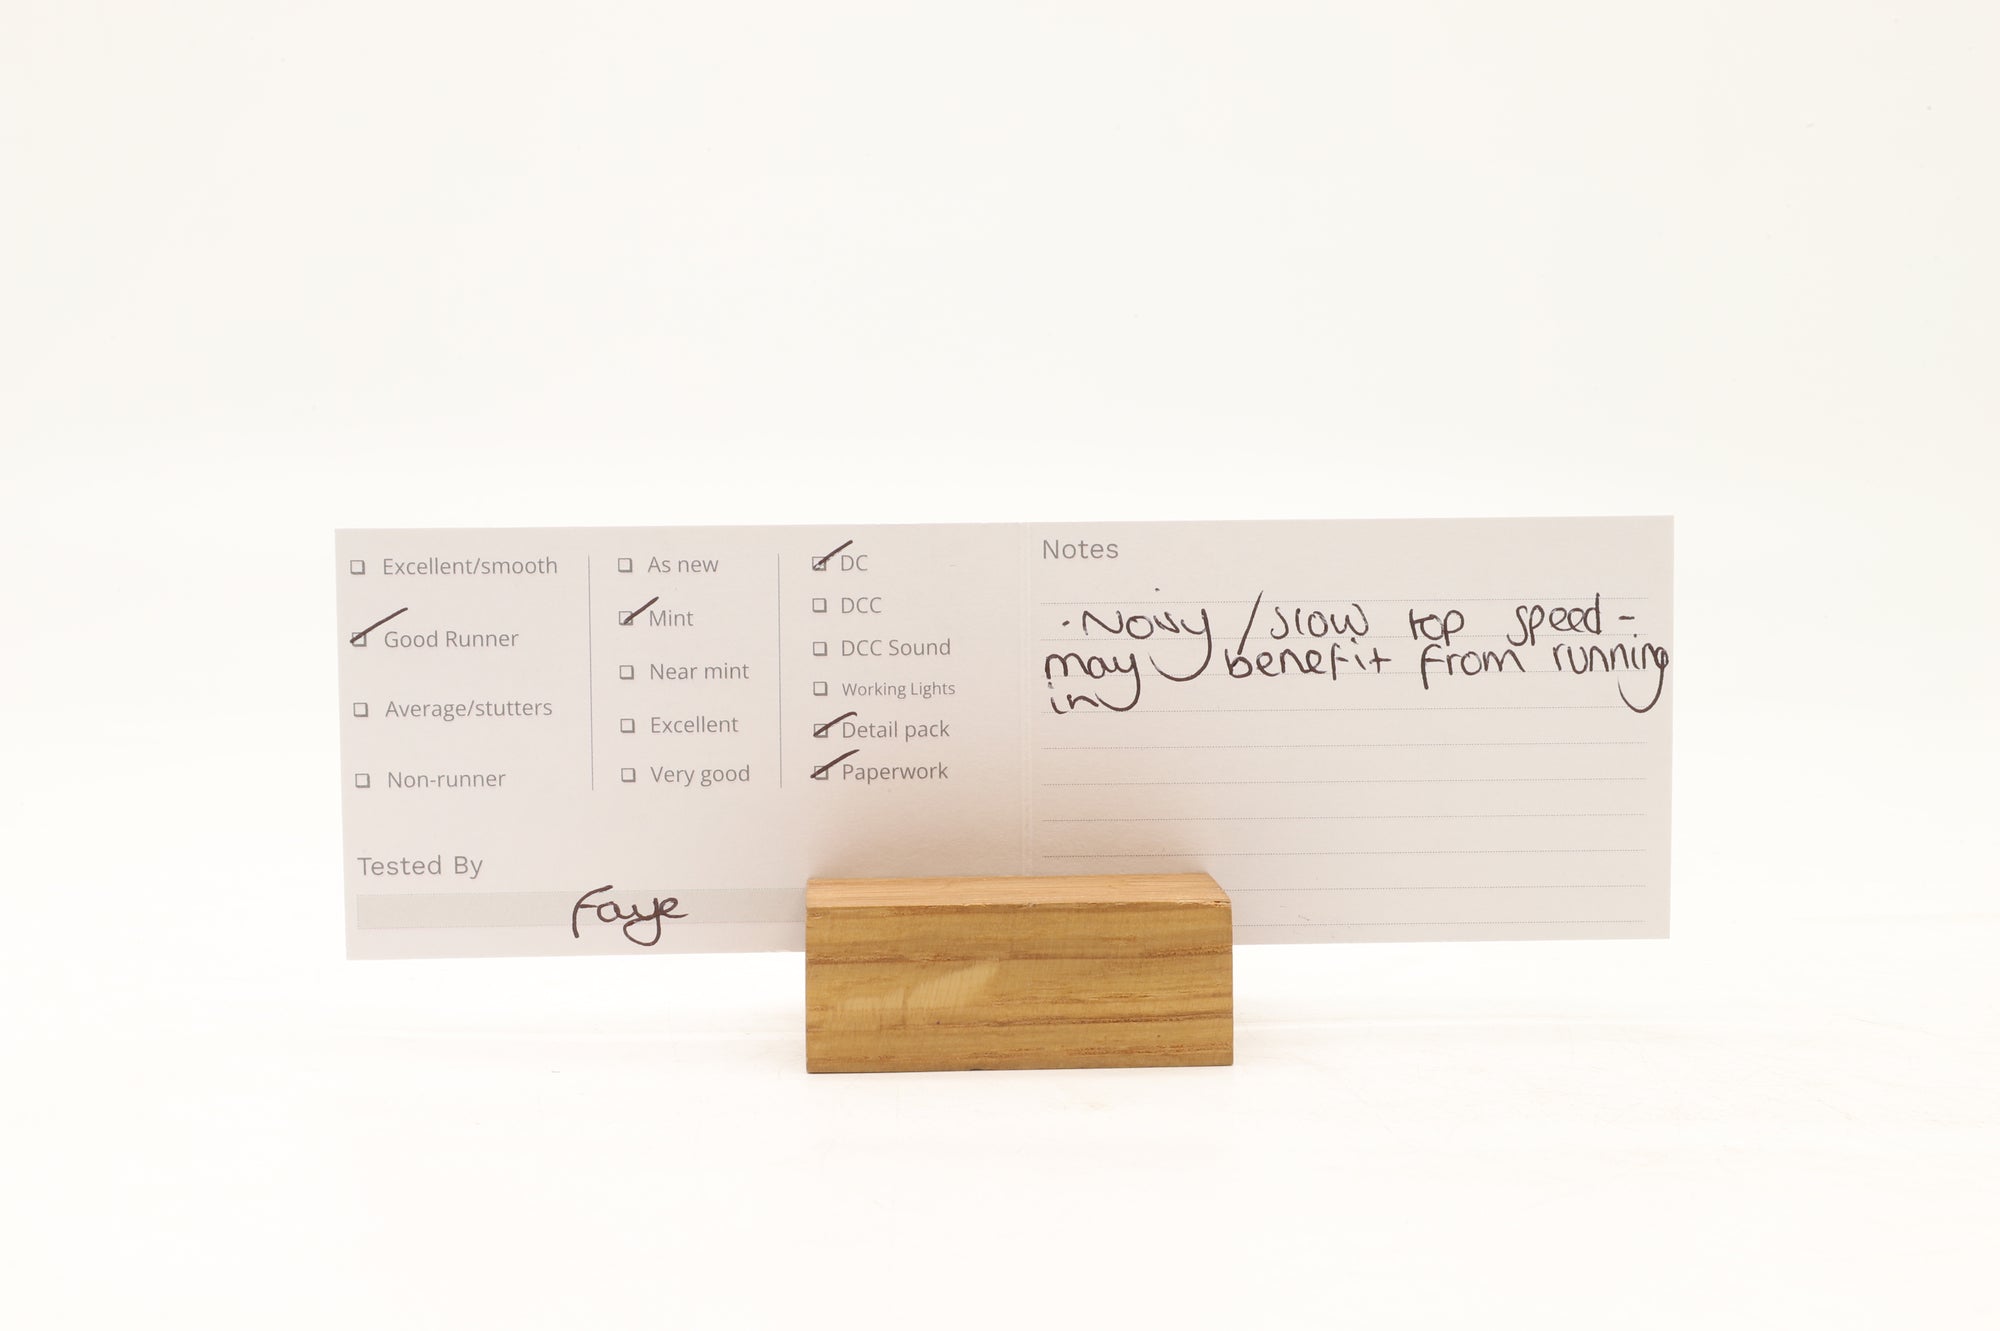 Excellent/smooth
Good Runner
Average/stutters
Non-runner
As new
Mint
Near mint
Excellent
Very good
DC
DCC
DCC Sound
Working Lights
Detail pack
Paperwork
Tested By
Faye
Notes
· Noisy / slow top speed -
may benefit from running
in